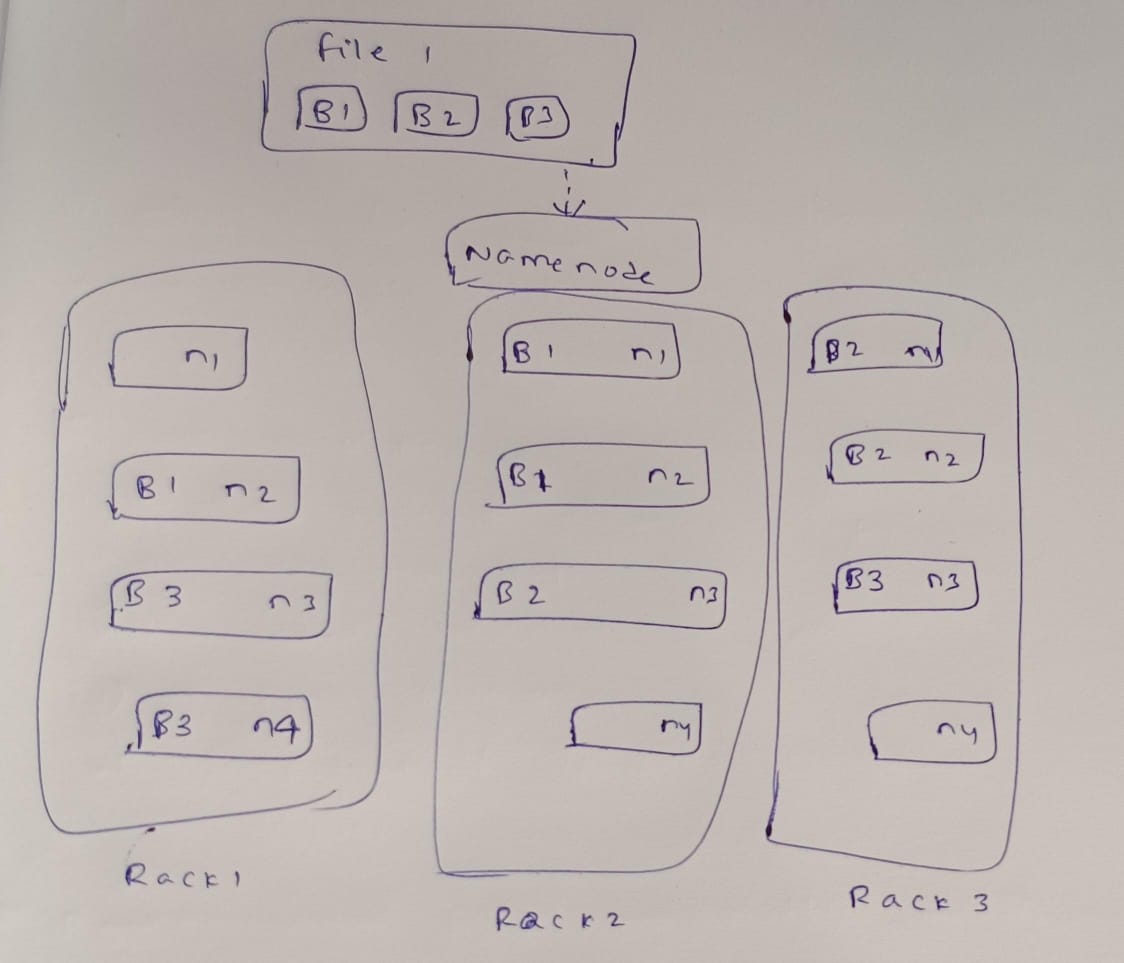 file 1
B1 B2 B3
Namenode
n1
B1 n2
B3 n3
B3 n4
Rack 1
B1 n1
B1 n2
B2 n3
n4
Rack 2
B2 n1
B2 n2
B3 n3
n4
Rack 3